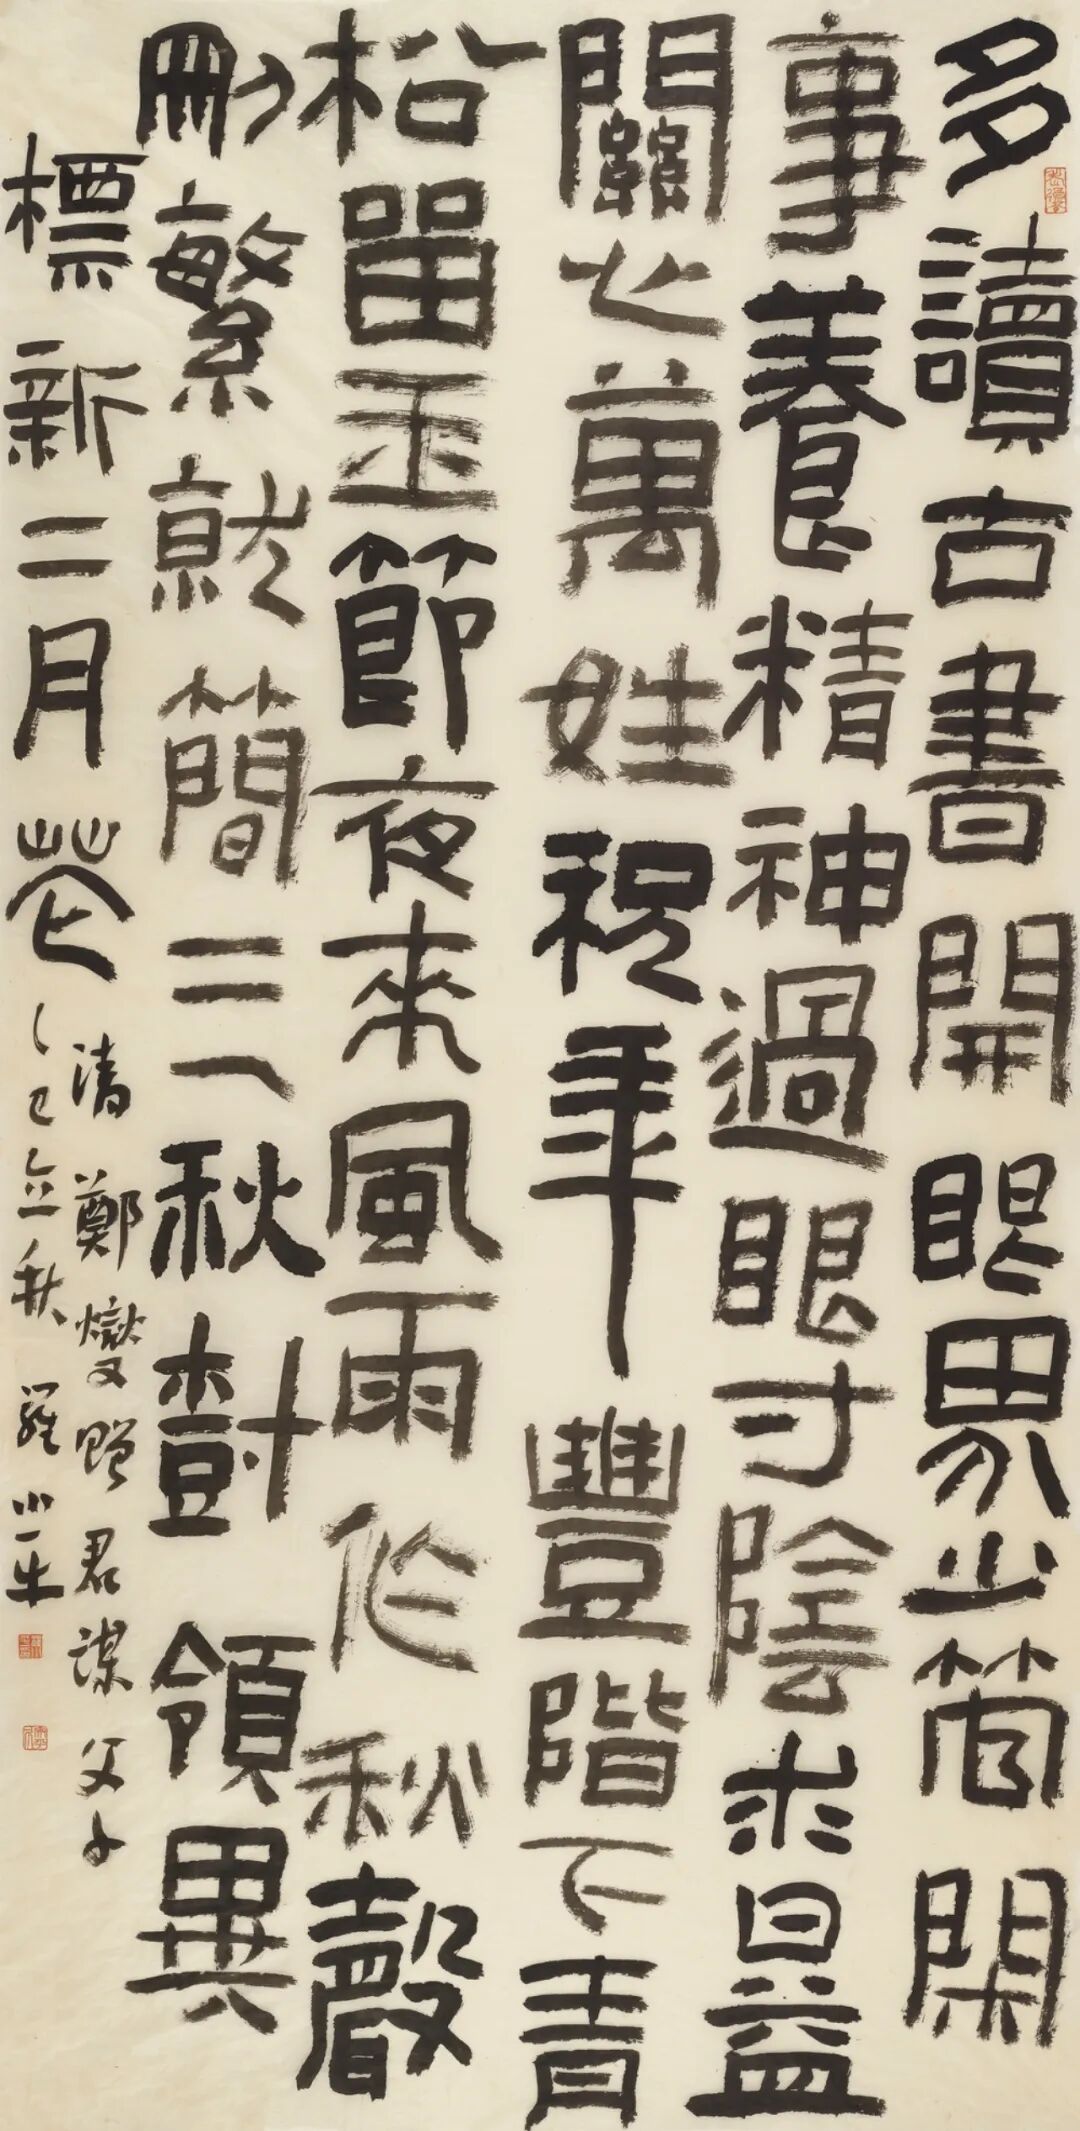 多讀古書開眼界少管閑
事養精神過眼寸陰求日益
關心萬姓祝年豐階下青
松留玉節夜來風雨作秋聲
刪繁就簡三秋樹領異
標新二月花
清鄭燮贈君謀父子
乙巳立秋 羅小平